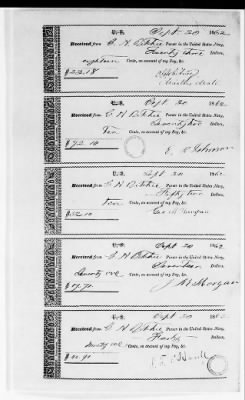 U.S. Sept 20 1862
Received from C. H. Ritchie Paymr in the United States Navy,
Twenty three Dollars,
eighteen Cents, on account of my Pay, &c.
$23.18
Master's Mate
U.S. Sept 20 1862
Received from C H Ritchie Paymr in the United States Navy,
Seventy two Dollars,
Ten Cents, on account of my Pay, &c.
$72.10 E. Johnson
U.S. Sept 20 1862
Received from C H Ritchie Paymr in the United States Navy,
Fifty two Dollars,
Ten Cents, on account of my Pay, &c.
$52.10
U.S. Sept 20 1862
Received from C. H Ritchie Paymr in the United States Navy,
Seventeen Dollars,
Seventy one Cents, on account of my Pay, &c.
J W Morgan
U.S. Sept 20 1862
Received from C. H Ritchie Paymr in the United States Navy,
Dollars,
Ninety one Cents, on account of my Pay, &c.